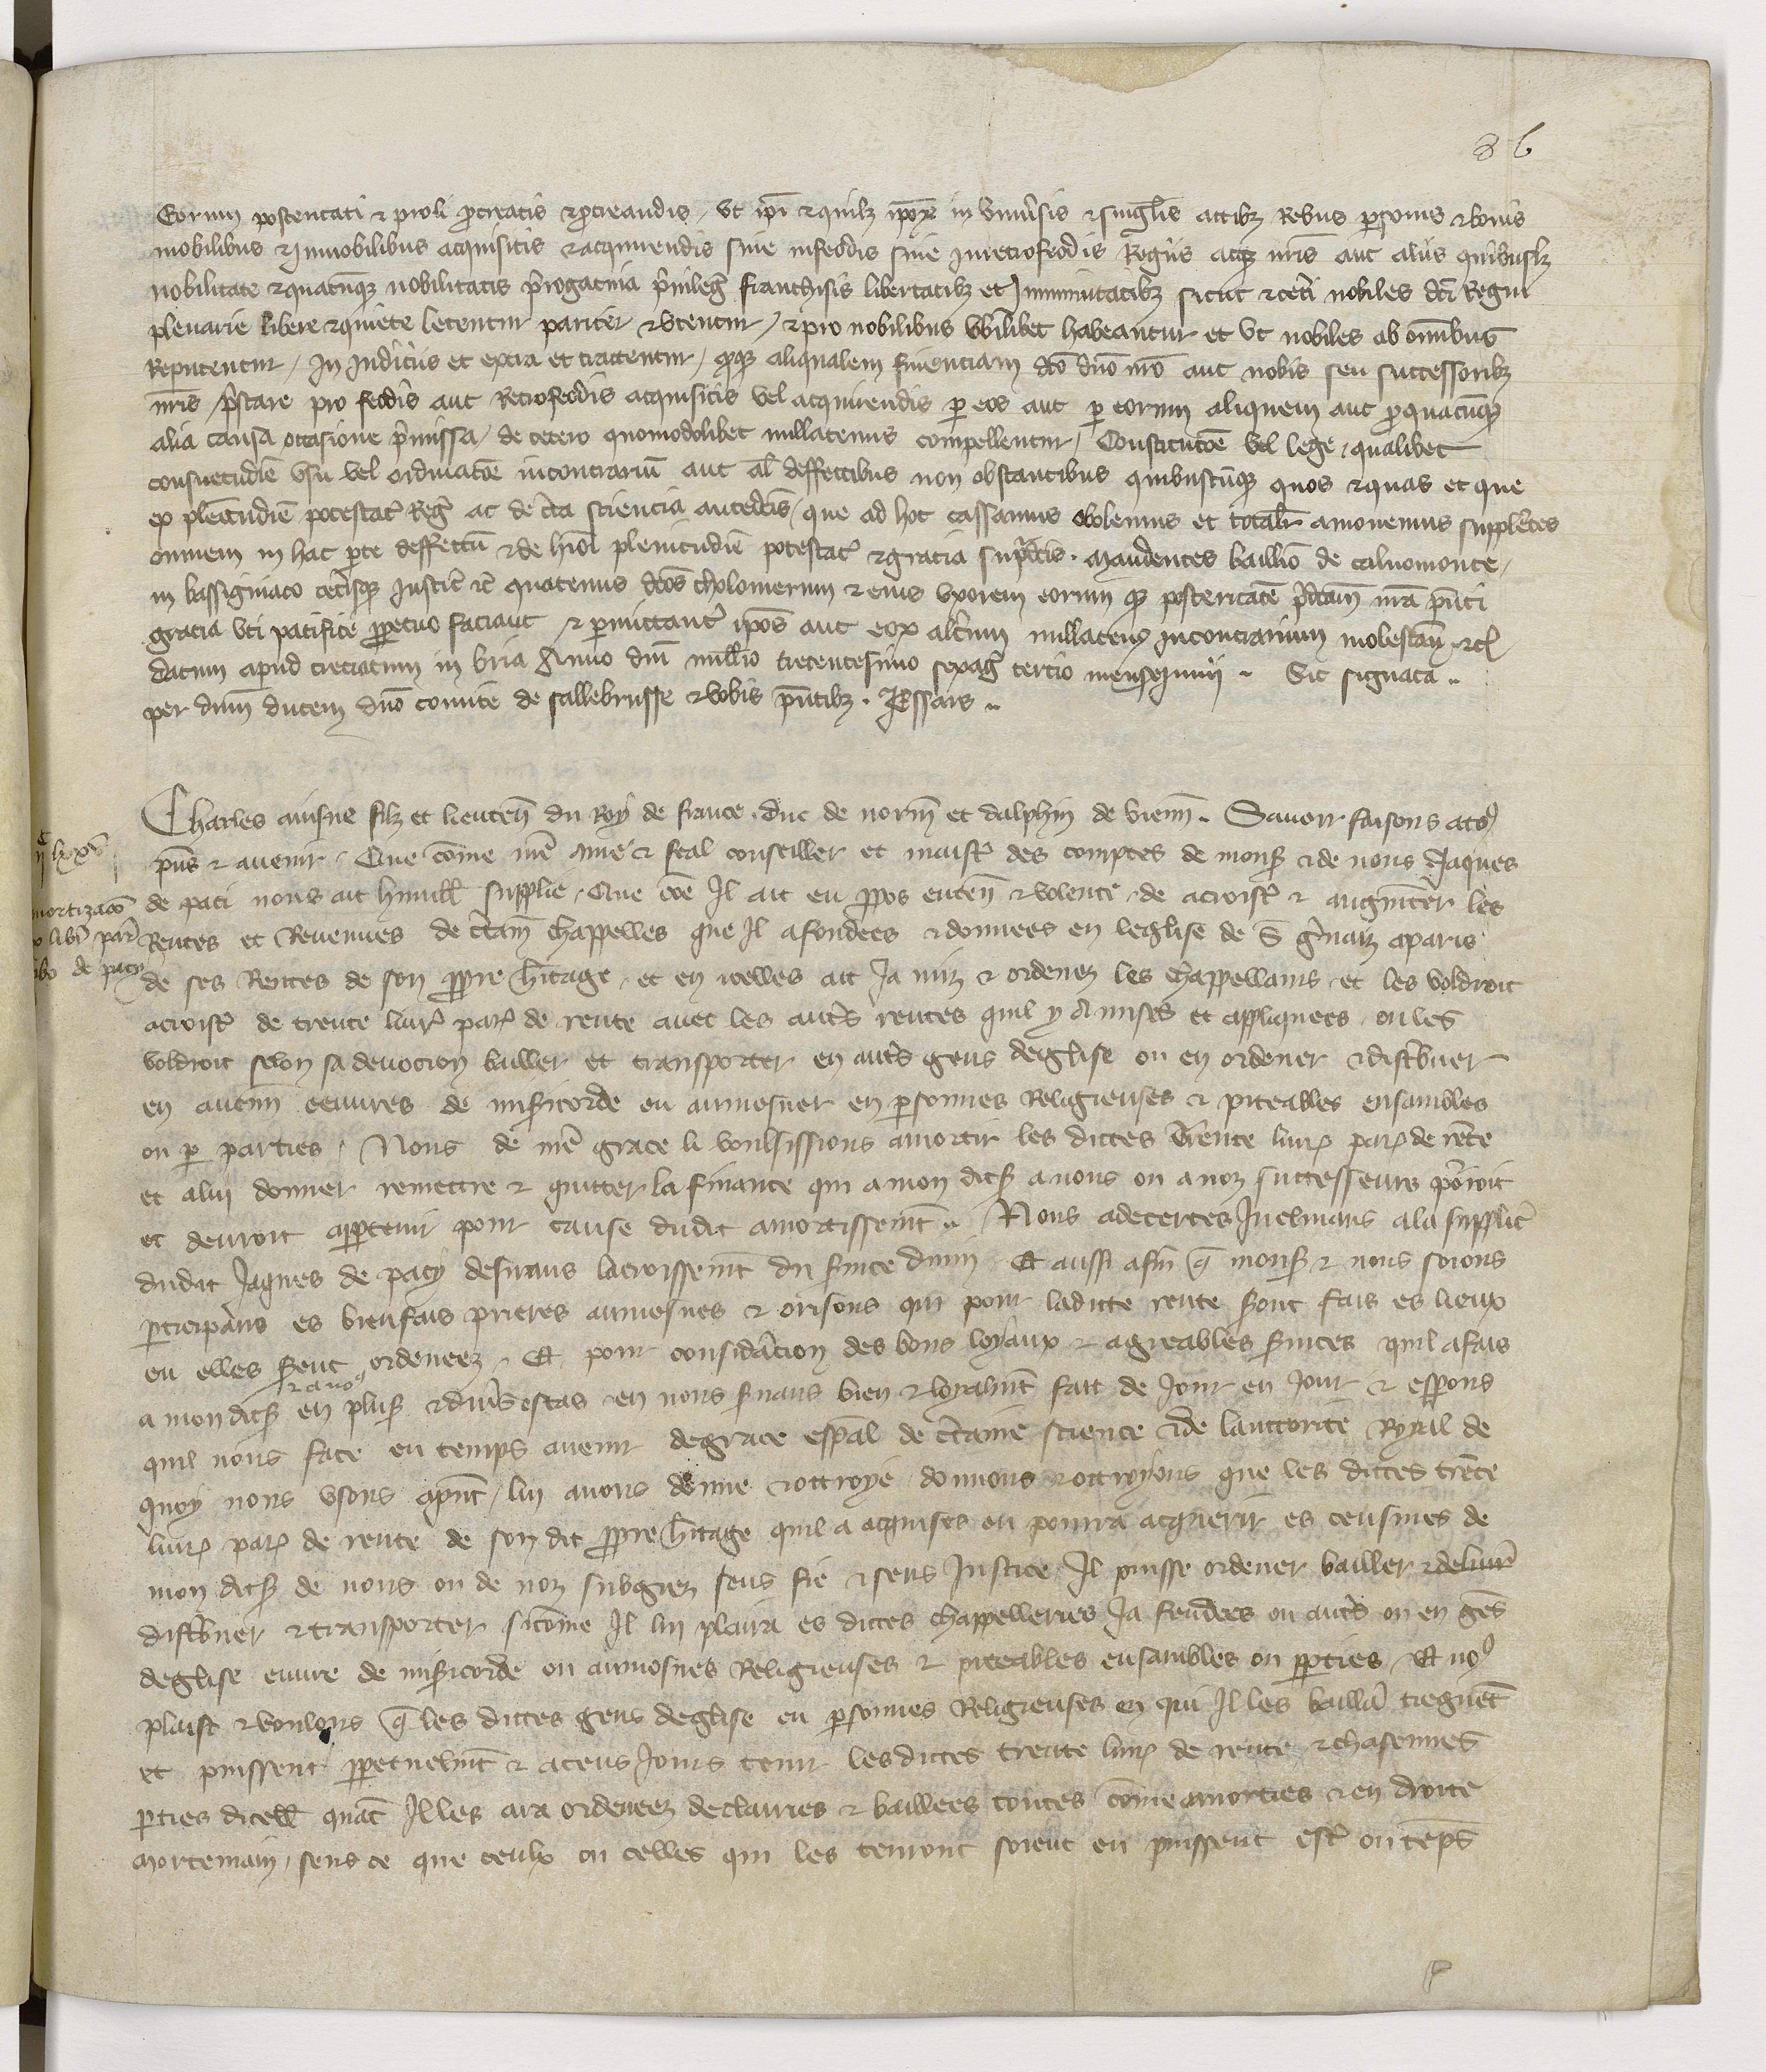 86
Eorum posteritati & proli procreatis & procreandis, ut ip̄i & quil3 ipōꝝ in univ̄sis & singl̄is actib3 Rebus p̱sonis & bonis
mobilibus & Immobilibus acquisitis & acquirendis sive in feodis sive in retrofeodis Regiis atq3 nr̄is aut aliis quibusl3
nobilitate & quacūq3 nobilitatis p̄rogativa p̄vileg̃ franchisis libertatib3 et Immunitatib3 sicut & cet̄i nobiles dc̄i Regni
plenarie libere & quiete letentur pariter & utentur, & pro nobilibus ubilibet habeantur et ut nobiles ab om̄nibus
Reputentur, In Judiciis et extra et tractentur, q̄q3 aliqualem financiam dc̄o dn̄o nr̄o aut nobis seu successorib3
nr̄is p̄stare pro feodis aut Retrofeodis acquisitis vel acquirendis p̱ eos aut p̱ eorum aliquem aut p̱ quacūq3
alia causa occasione p̄missa, de cetero quomodolibet nullatenus compellentur, Constitucōe vel lege, qualibet
consuetudīe usu vel ordinacōe incontrariū aut al̄ deffectibus non obstantibus quibuscūq3 quos & quas et que
ex plēitudīe potestat̃ Reg̃ ac de c̄ta sciencia antedc̄is, que ad hoc cassamus &volemus et total̄r amovemus supplētes
omnem in hac p̱te deffectū & de hīo̅i plenitudīe potestat̃ & gracia sup̄dc̄is. Mandentes baillīo de calvomonte
in bassigniaco cet̄isq3 Justic̃ &c̃ quatenus dc̄os cholomerum & eius uxorem eorum q3 posteritatē p̄dc̄am nr̄a p̄nti
gracia uti pacifice p̱petuo faciant & p̱mittant̃ ip̄os aut eoꝝ alt̄um nullateng incontrarium molestañ &c̃
datum apud creciacum in bria Anno dnī millīo trecentesimo sexag̃ tercio mense Junii .. Sic signata ..
per dnm̄ ducem dn̄o comite de sallebrusse & vobis p̄ntib3 . Essars ..
Charles ainsne filz et lieuteñ du Roy de France, duc de norm̃ et dalphin de vienñ .. Savoir faisons a tog
p̄ns & avenir, Que cōme nr̄e Amé & feal conseiller et maistr̃ des comptes de mons̃ & de nous Jaques
de paci nous ait humill̃ supplie, Que cōe Il ait eu p̱pos enteñ & volente, de acroistr̃ & augmēter les
Rentes et Revenues de c̄tain̄ chappelles que Il a fondees & donnees en leglise de S̄ g̃vaiz a paris
de ses Rentes de son p̱pre h̄itage, et en icelles ait Ja miz & ordenez les chappellains, et les voldroit
acroistr̃ de trente livr̃ par̃ de rente avec les aut̄s rentes quil y A mises et appliquees, ou les
voldroit selon sa devocion bailler et transporter en aut̄s gens deglise ou en ordener & distb̄uer
en aucun̄ oeuvres de mis̃icorde ou aumosner en p̱sonnes Religieuses & piteables ensambles
ou p̱ parties, Nous de nr̄e grace li voulsissions amortir les dictes trente livr̃ par̃ de rēte
et a lui donner remettre & quitter la finance qui a mon dits̃ a nous ou a noz successeurs p̄orroit
et devroit app̱tenir pour cause dudit amortissemt̄ .. Nous adecertes Inclinans a la supplic̃
dudit Jaques de pacy desirans lacroissemt̄ du s̃vice divin Et aussi afin q̄ mons̃ & nous soions
p̱ticipans es bienfais prieres aumosnes & orisons qui pour ladicte rente s̃ont fais es lieux
ou elles s̃ont ordeneez, Et pour consid̄acion des bons loyaux & agreables s̃vices quil a fais
& a nog
a mon dits̃ en plus̃ & divs̃ estas en nous s̃vans bien & loyalmt̄ fait de Jour en Jour & esp̱ons
quil nous face en temps avenir de grace esp̄al de c̄taine science & de lauctorite Royal de
quoy nous usons ap̄nt, lui avons donne & ottroye, donnons & ottroyons que les dictes trēte
livr̃ par̃ de rente de son dit p̱pre h̄itage quil a acquises ou pourra acquerir es censives de
mon dits̃ de nous ou de noz subgiez sens fie & sens Justice Il puisse ordener bailler & delivr̃
distb̄uer & transporter si cōme Il lui plaira es dictes chappelleries Ja fondees ou aut̄s ou en gēs
deglise euvre de mis̃icorde ou aumosnes Religieuses & piteables ensambles ou p̱ p̱ties, Et nog
plaist & voulons q̄ les dictes gens deglise ou p̱sonnes Religieuses en qui Il les baillr̃a tiegnēt
et puissent p̱petuelmt̄ & a tous Jours tenir les dictes trente livr̃ de rente & chasennes
p̱ties dicell̃ quāt Il les ara ordeneez declairies & baillees toutes cōme amorties & en droite
mortemain, sens ce que ceulx ou celles qui les tenront soient ou puissent estr̃ ou tēps
lxxv
mortizac̄o
libr̃ par̃
de pacy